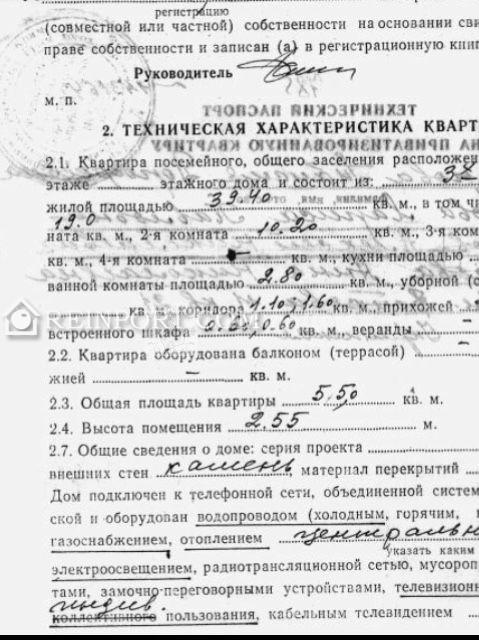 регистрацию
(совместной или частной) собственности на основании сви
праве собственности и записан (а) в регистрационную книг
Руководитель
м. п.
ТЕХНИЧЕСКИЙ ПАСПОРТ
2. ТЕХНИЧЕСКАЯ ХАРАКТЕРИСТИКА КВАРТ
НА ПРИВАТИЗИРОВАННУЮ КВАРТИРУ
2.1. Квартира посемейного, общего заселения расположен
этаже этажного дома и состоит из:
жилой площадью 39.40 кв. м., в том чи
19.0
ната кв. м., 2-я комната 10.20 кв. м., 3-я ком
кв. м., 4-я комната кв. м., кухни площадью
ванной комнаты площадью 2.80 кв. м., уборной (с
кв. м., коридора 1.10; 1.60 кв. м., прихожей
встроенного шкафа 0.60 кв. м., веранды –
2.2. Квартира оборудована балконом (террасой) –
жией – кв. м.
2.3. Общая площадь квартиры 5,50 кв. м.
2.4. Высота помещения 2.55 м.
2.7. Общие сведения о доме: серия проекта
внешних стен камень, материал перекрытий
Дом подключен к телефонной сети, объединенной систем
ской и оборудован водопроводом (холодным, горячим,
газоснабжением, отоплением центральн
указать каким
электроосвещением, радиотрансляционной сетью, мусороп
тами, замочно-переговорными устройствами, телевизионн
индив.
коллективного пользования, кабельным телевидением